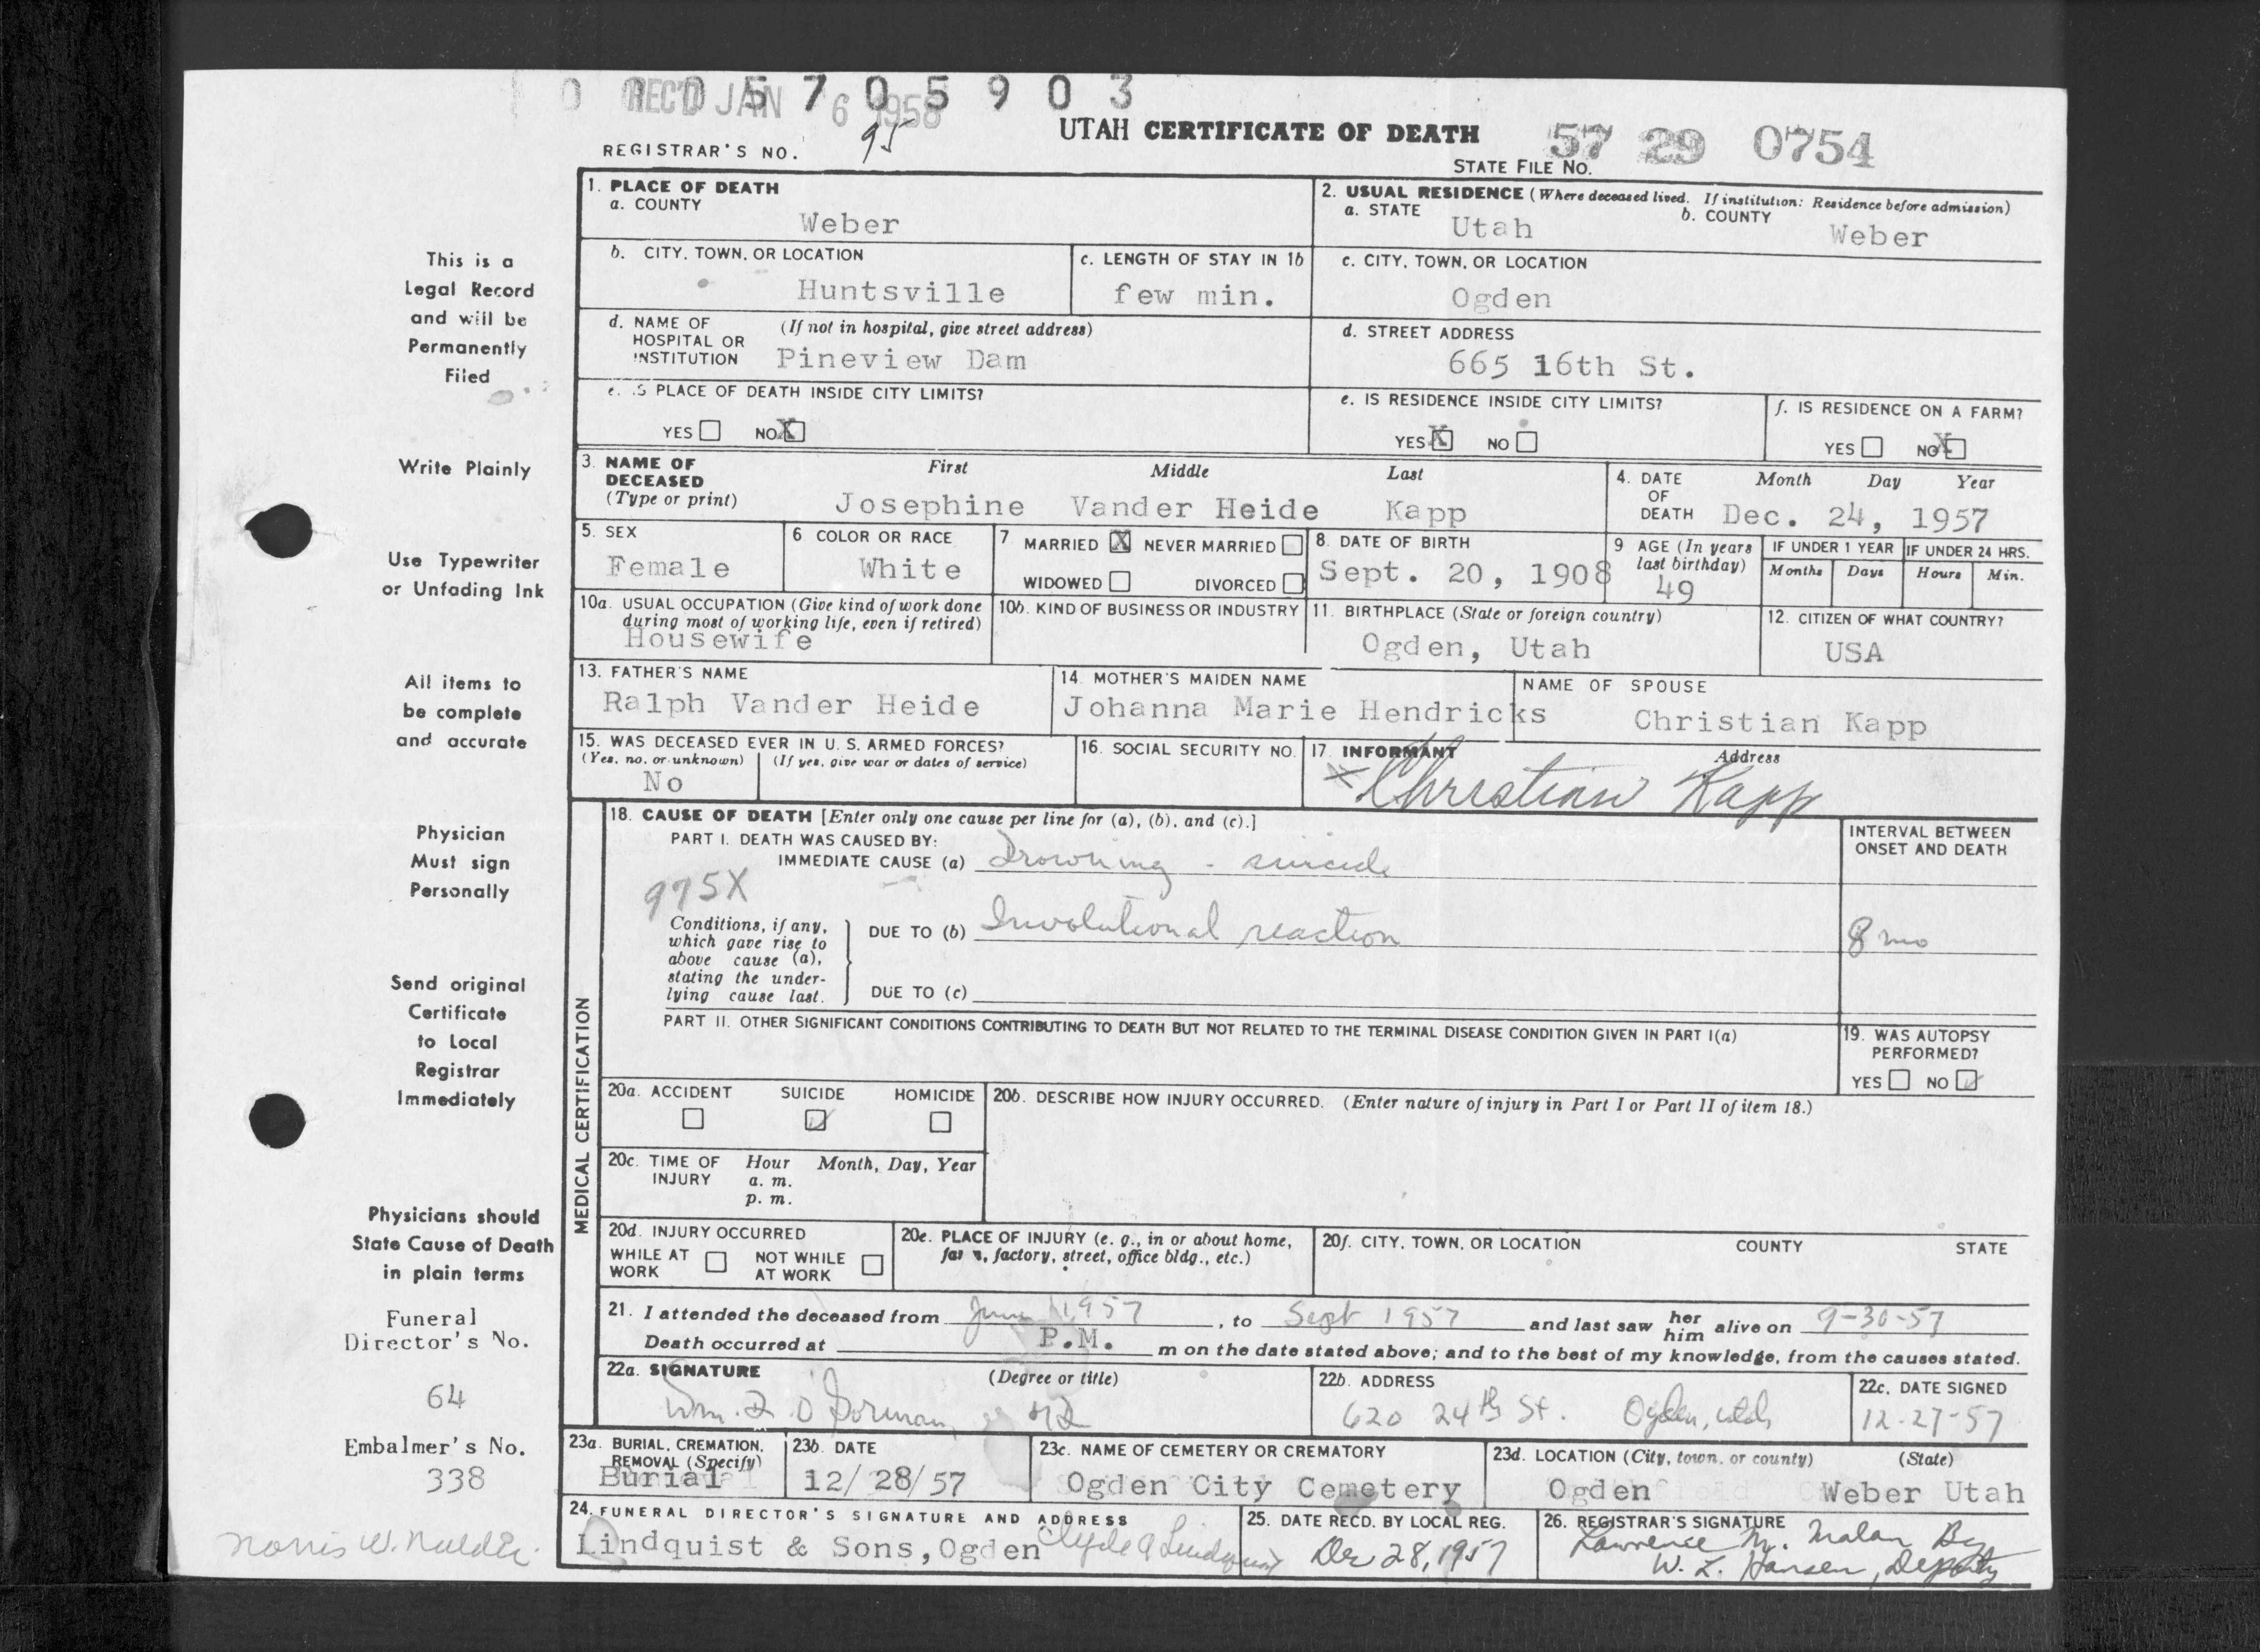 0 0 0 5 7 0 5 9 0 3
REC'D JAN 6 1958
UTAH CERTIFICATE OF DEATH
REGISTRAR'S NO. 95
STATE FILE NO. 57 29 0754
This is a
Legal Record
and will be
Permanently
Filed
Write Plainly
Use Typewriter
or Unfading Ink
All items to
be complete
and accurate
Physician
Must sign
Personally
Send original
Certificate
to Local
Registrar
Immediately
Physicians should
State Cause of Death
in plain terms
Funeral
Director's No.
64
Embalmer's No.
338
Norris W.
1. PLACE OF DEATH
a. COUNTY
Weber
2. USUAL RESIDENCE (Where deceased lived. If institution: Residence before admission)
a. STATE
Utah
b. COUNTY
Weber
b. CITY, TOWN, OR LOCATION
Huntsville
c. LENGTH OF STAY IN 1b
few min.
c. CITY, TOWN, OR LOCATION
Ogden
d. NAME OF HOSPITAL OR INSTITUTION
(If not in hospital, give street address)
Pineview Dam
d. STREET ADDRESS
665 16th St.
e. IS PLACE OF DEATH INSIDE CITY LIMITS?
YES NO X
e. IS RESIDENCE INSIDE CITY LIMITS?
YES X NO
f. IS RESIDENCE ON A FARM?
YES NO X
3. NAME OF DECEASED (Type or print)
First Middle Last
Josephine Vander Heide Kapp
4. DATE OF DEATH
Month Day Year
Dec. 24, 1957
5. SEX
Female
6 COLOR OR RACE
White
7 MARRIED X NEVER MARRIED
WIDOWED DIVORCED
8. DATE OF BIRTH
Sept. 20, 1908
9 AGE (In years last birthday)
49
IF UNDER 1 YEAR
Months Days
IF UNDER 24 HRS.
Hours Min.
10a. USUAL OCCUPATION (Give kind of work done during most of working life, even if retired)
Housewife
10b. KIND OF BUSINESS OR INDUSTRY
11. BIRTHPLACE (State or foreign country)
Ogden, Utah
12. CITIZEN OF WHAT COUNTRY?
USA
13. FATHER'S NAME
Ralph Vander Heide
14. MOTHER'S MAIDEN NAME
Johanna Marie Hendricks
NAME OF SPOUSE
Christian Kapp
15. WAS DECEASED EVER IN U. S. ARMED FORCES?
(Yes, no, or unknown) (If yes, give war or dates of service)
No
16. SOCIAL SECURITY NO.
17. INFORMANT Address
X Christian Kapp
MEDICAL CERTIFICATION
18. CAUSE OF DEATH [Enter only one cause per line for (a), (b), and (c).]
PART I. DEATH WAS CAUSED BY:
IMMEDIATE CAUSE (a) Drowning - suicide
INTERVAL BETWEEN ONSET AND DEATH
975X
Conditions, if any, which gave rise to above cause (a), stating the underlying cause last.
DUE TO (b) Involutional reaction
8 mo
DUE TO (c)
PART II. OTHER SIGNIFICANT CONDITIONS CONTRIBUTING TO DEATH BUT NOT RELATED TO THE TERMINAL DISEASE CONDITION GIVEN IN PART I(a)
19. WAS AUTOPSY PERFORMED?
YES NO ✓
20a. ACCIDENT SUICIDE ✓ HOMICIDE
20b. DESCRIBE HOW INJURY OCCURRED. (Enter nature of injury in Part I or Part II of item 18.)
20c. TIME OF INJURY
Hour Month, Day, Year
a. m.
p. m.
20d. INJURY OCCURRED
WHILE AT WORK NOT WHILE AT WORK
20e. PLACE OF INJURY (e. g., in or about home, farm, factory, street, office bldg., etc.)
20f. CITY, TOWN, OR LOCATION COUNTY STATE
21. I attended the deceased from June 1957, to Sept 1957 and last saw her him alive on 9-30-57
Death occurred at P.M. m on the date stated above; and to the best of my knowledge, from the causes stated.
22a. SIGNATURE (Degree or title)
Wm. F. O'Gorman, MD
22b. ADDRESS
620 24th St. Ogden, Utah
22c. DATE SIGNED
12-27-57
23a. BURIAL, CREMATION, REMOVAL (Specify)
Burial
23b. DATE
12/28/57
23c. NAME OF CEMETERY OR CREMATORY
Ogden City Cemetery
23d. LOCATION (City, town, or county) (State)
Ogden Weber Utah
24. FUNERAL DIRECTOR'S SIGNATURE AND ADDRESS
Lindquist & Sons, Ogden Clyde A Lindquist
25. DATE RECD. BY LOCAL REG.
Dec 28, 1957
26. REGISTRAR'S SIGNATURE
Lawrence M. Malan By
W. L. Hansen, Deputy